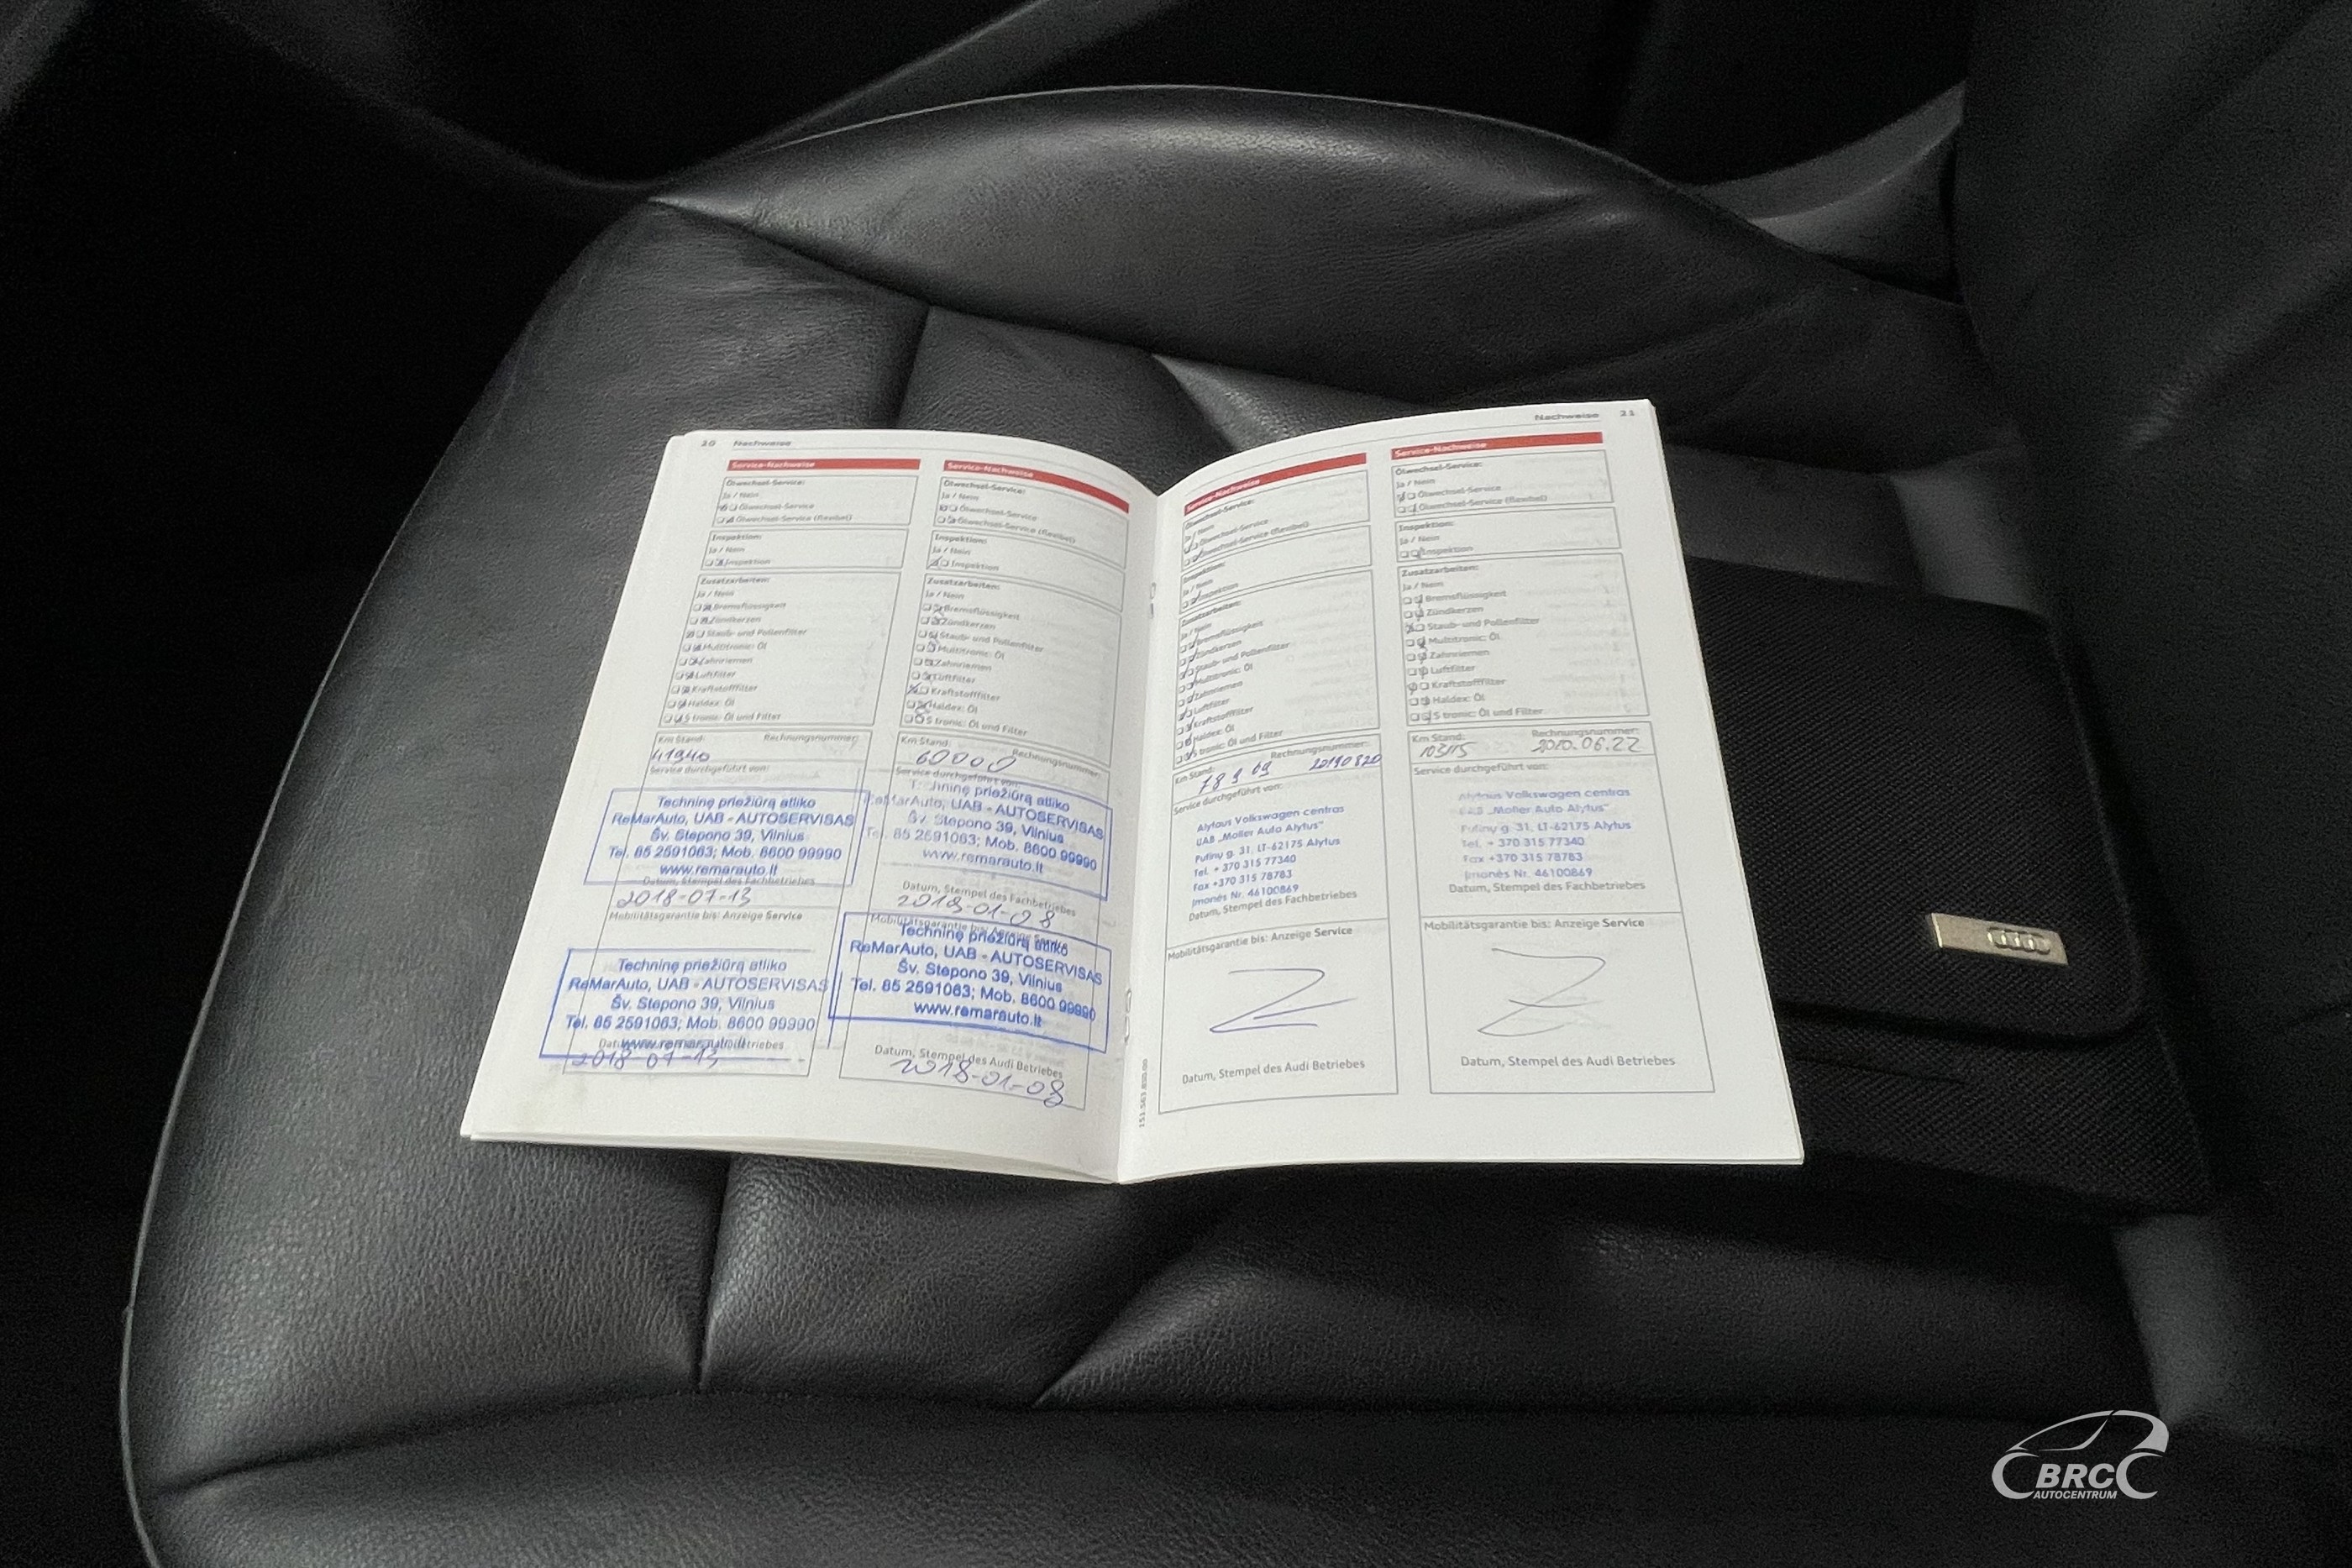 20 Nachweise
Service-Nachweise
Ölwechsel-Service:
Ja / Nein
Ölwechsel-Service
Ölwechsel-Service (flexibel)
Inspektion:
Ja / Nein
Inspektion
Zusatzarbeiten:
Ja / Nein
Bremsflüssigkeit
Zündkerzen
Staub- und Pollenfilter
Multitronic: Öl
Zahnriemen
Luftfilter
Kraftstofffilter
Haldex: Öl
S tronic: Öl und Filter
Km Stand: Rechnungsnummer:
41940
Service durchgeführt von:
Techninę priežiūrą atliko
ReMarAuto, UAB - AUTOSERVISAS
Šv. Stepono 39, Vilnius
Tel. 85 2591063; Mob. 8600 99990
www.remarauto.lt
Datum, Stempel des Fachbetriebes
2018-07-13
Mobilitätsgarantie bis: Anzeige Service
Techninę priežiūrą atliko
ReMarAuto, UAB - AUTOSERVISAS
Šv. Stepono 39, Vilnius
Tel. 85 2591063; Mob. 8600 99990
www.remarauto.lt
2018-07-13
Service-Nachweise
Ölwechsel-Service:
Ja / Nein
Ölwechsel-Service
Ölwechsel-Service (flexibel)
Inspektion:
Ja / Nein
Inspektion
Zusatzarbeiten:
Ja / Nein
Bremsflüssigkeit
Zündkerzen
Staub- und Pollenfilter
Multitronic: Öl
Zahnriemen
Luftfilter
Kraftstofffilter
Haldex: Öl
S tronic: Öl und Filter
Km Stand: Rechnungsnummer:
60000
Service durchgeführt von:
Techninę priežiūrą atliko
ReMarAuto, UAB - AUTOSERVISAS
Šv. Stepono 39, Vilnius
Tel. 85 2591063; Mob. 8600 99990
www.remarauto.lt
Datum, Stempel des Fachbetriebes
2018-01-08
Mobilitätsgarantie bis: Anzeige Service
Techninę priežiūrą atliko
ReMarAuto, UAB - AUTOSERVISAS
Šv. Stepono 39, Vilnius
Tel. 85 2591063; Mob. 8600 99990
www.remarauto.lt
Datum, Stempel des Audi Betriebes
2018-01-08
Nachweise 21
Service-Nachweise
Ölwechsel-Service:
Ja / Nein
Ölwechsel-Service
Ölwechsel-Service (flexibel)
Inspektion:
Ja / Nein
Inspektion
Zusatzarbeiten:
Ja / Nein
Bremsflüssigkeit
Zündkerzen
Staub- und Pollenfilter
Multitronic: Öl
Zahnriemen
Luftfilter
Kraftstofffilter
Haldex: Öl
S tronic: Öl und Filter
Km Stand: Rechnungsnummer:
78909 20190820
Service durchgeführt von:
Alytaus Volkswagen centras
UAB „Moller Auto Alytus"
Pušinų g. 31, LT-62175 Alytus
Tel. + 370 315 77340
Fax +370 315 78783
Įmonės Nr. 46100869
Datum, Stempel des Fachbetriebes
Mobilitätsgarantie bis: Anzeige Service
Datum, Stempel des Audi Betriebes
Service-Nachweise
Ölwechsel-Service:
Ja / Nein
Ölwechsel-Service
Ölwechsel-Service (flexibel)
Inspektion:
Ja / Nein
Inspektion
Zusatzarbeiten:
Ja / Nein
Bremsflüssigkeit
Zündkerzen
Staub- und Pollenfilter
Multitronic: Öl
Zahnriemen
Luftfilter
Kraftstofffilter
Haldex: Öl
S tronic: Öl und Filter
Km Stand: Rechnungsnummer:
103115 2020.06.22
Service durchgeführt von:
Alytaus Volkswagen centras
UAB „Moller Auto Alytus"
Pušinų g. 31, LT-62175 Alytus
Tel. + 370 315 77340
Fax +370 315 78783
Įmonės Nr. 46100869
Datum, Stempel des Fachbetriebes
Mobilitätsgarantie bis: Anzeige Service
Datum, Stempel des Audi Betriebes
BRC
AUTOCENTRUM